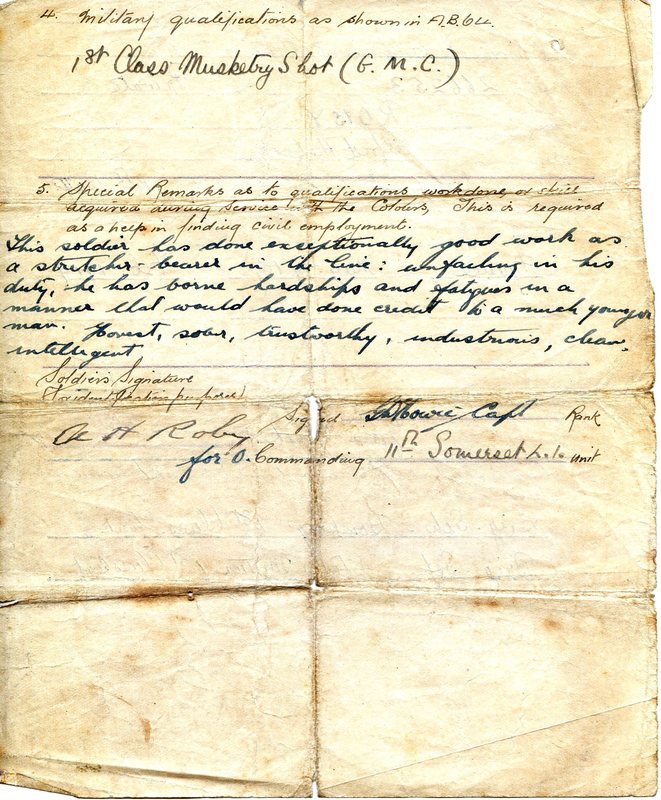 4. Military qualifications as shown in A.B.64.
1st Class Musketry Shot (G.M.C.)
5. Special Remarks as to qualifications, work done, or skill
acquired during service with the Colours, This is required
as a help in finding civil employment.
This soldier has done exceptionally good work as
a stretcher-bearer in the line: unfailing in his
duty, he has borne hardships and fatigues in a
manner that would have done credit to a much younger
man. Honest, sober, trustworthy, industrious, clean,
intelligent
Soldier's Signature
A H Roby
Signed Capt Rank
for O. Commanding 11th Somerset L.I. Unit